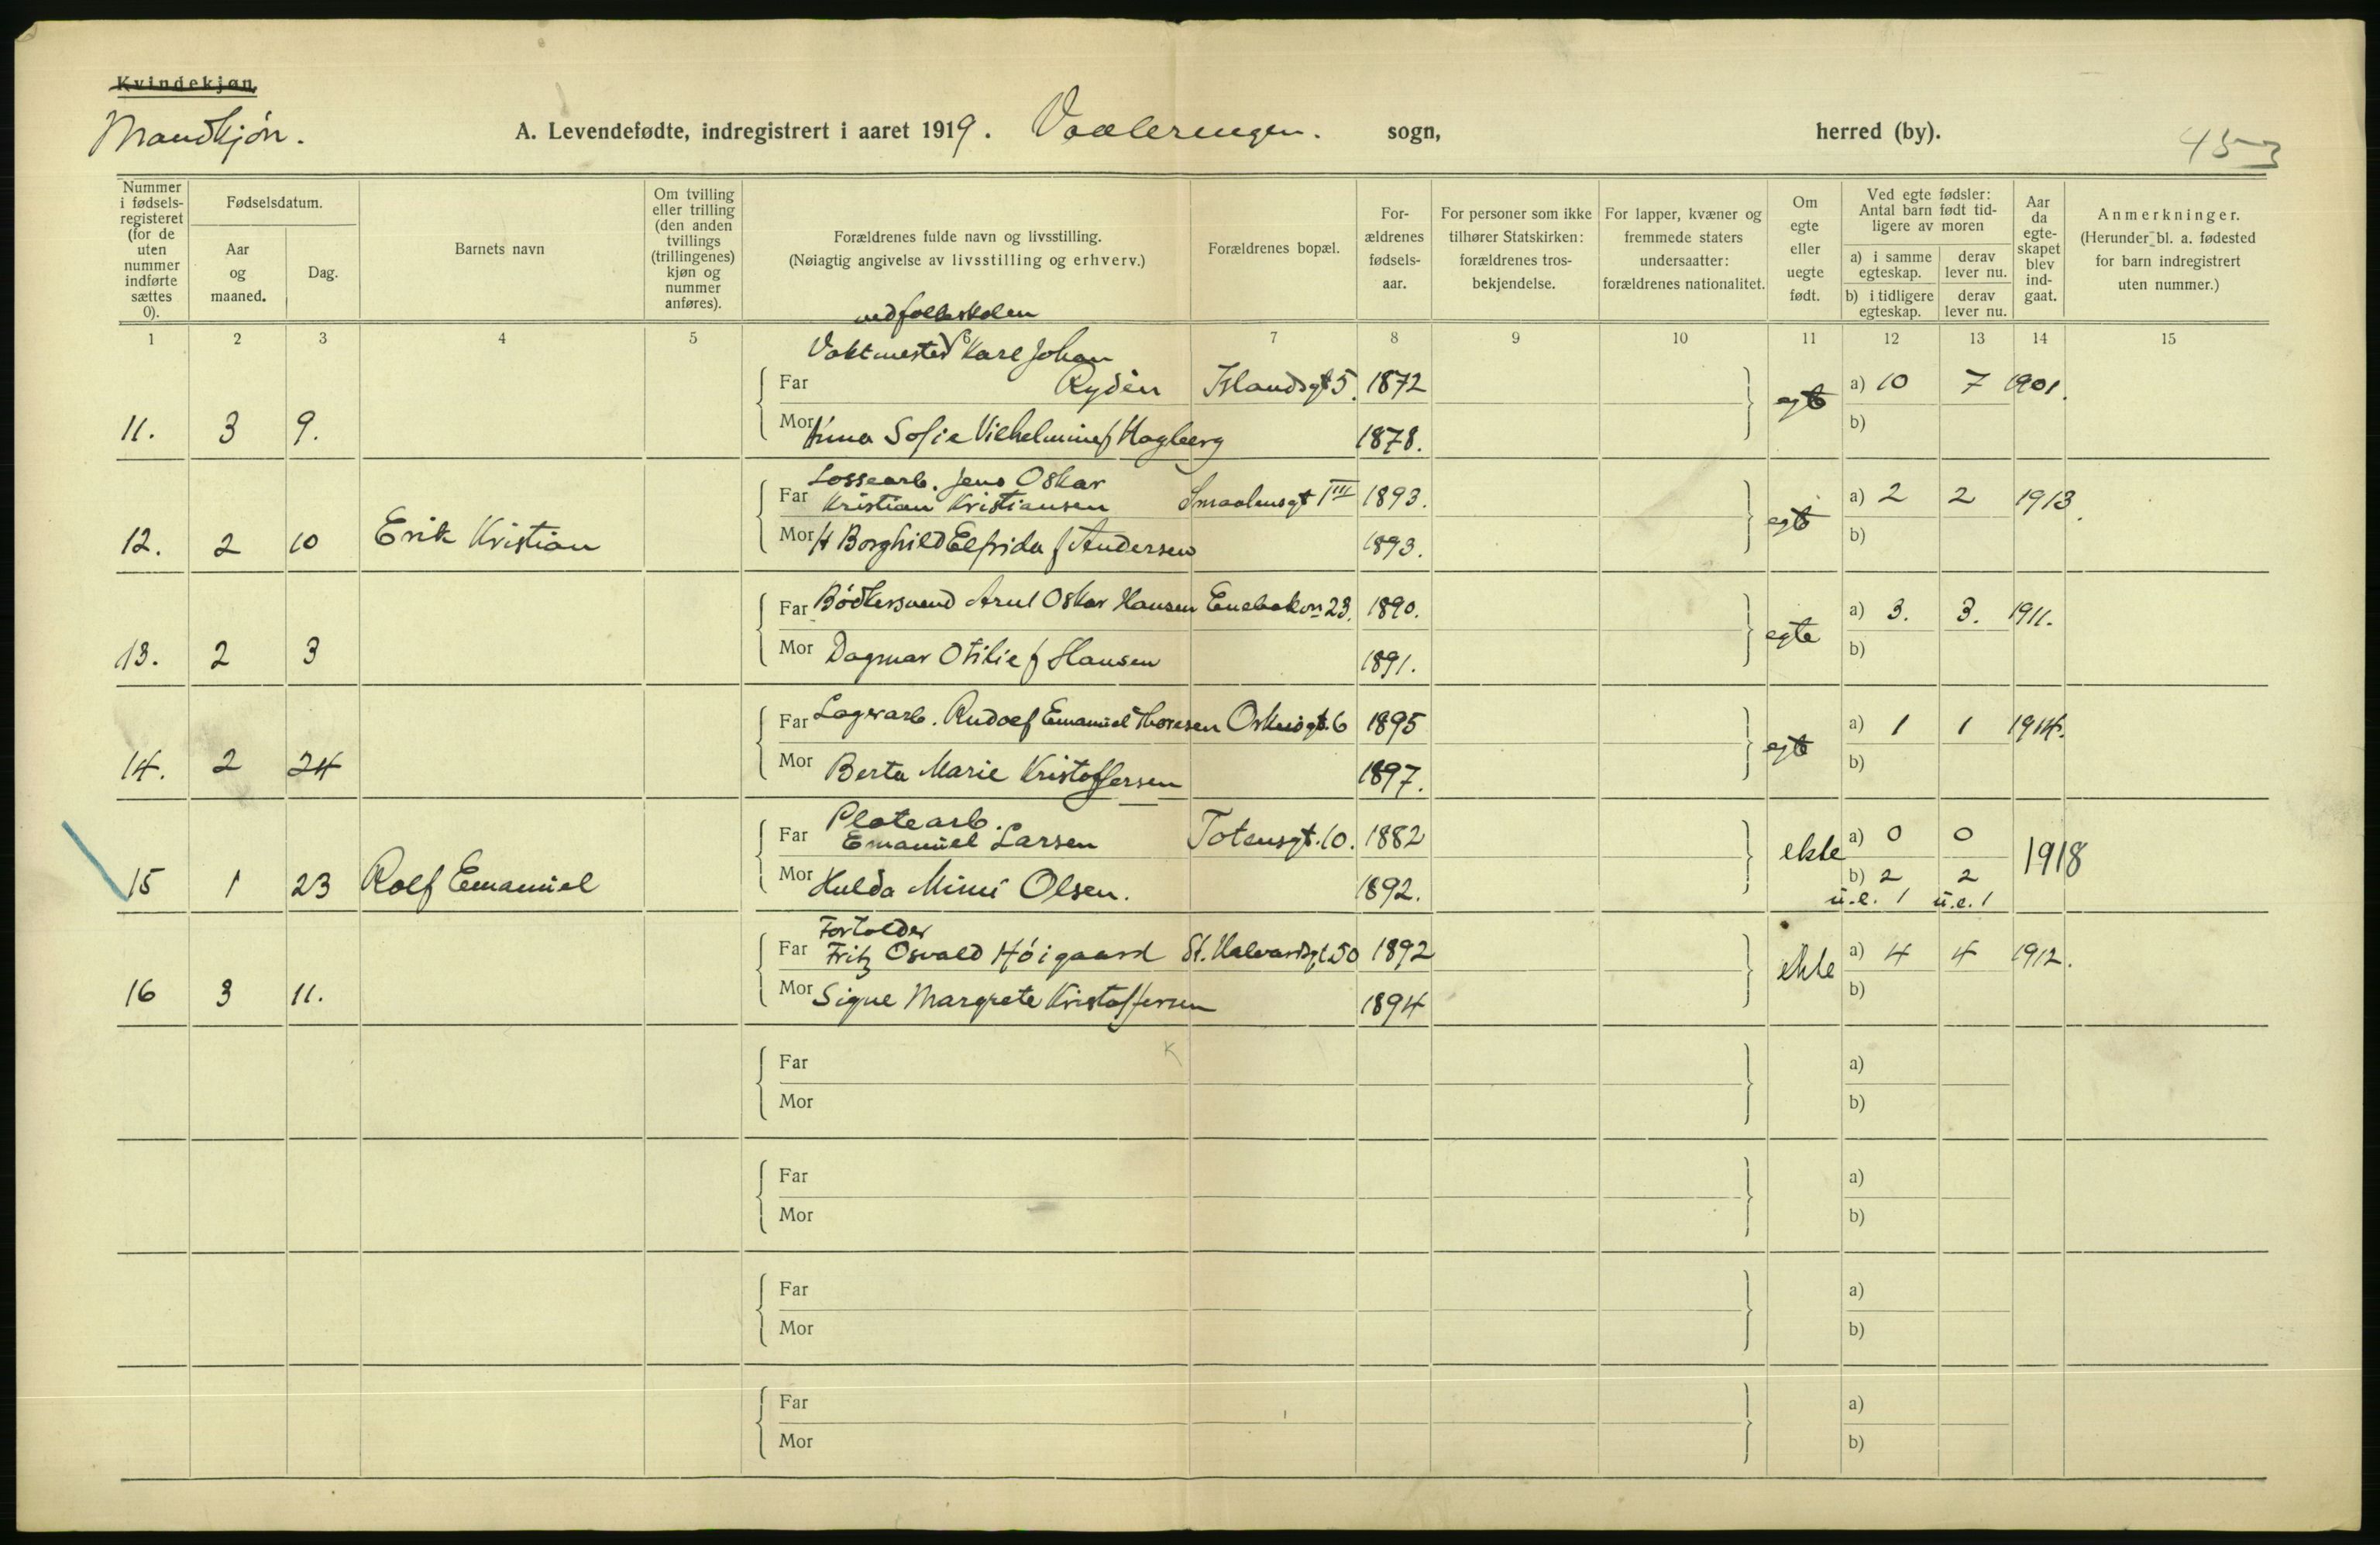 Kvindekjøn.
Mandkjøn.
A. Levendefødte, indregistrert i aaret 1919. Vaalerengen. sogn, herred (by).
453
Nummer i fødselsregisteret (for de uten nummer indførte sættes 0).
Fødselsdatum.
Aar og maaned.
Dag.
Barnets navn
Om tvilling eller trilling (den anden tvillings (trillingenes) kjøn og nummer anføres).
Forældrenes fulde navn og livsstilling.
(Nøiagtig angivelse av livsstilling og erhverv.)
Forældrenes bopæl.
Forældrenes fødselsaar.
For personer som ikke tilhører Statskirken: forældrenes trosbekjendelse.
For lapper, kvæner og fremmede staters undersaatter: forældrenes nationalitet.
Om egte eller uegte født.
Ved egte fødsler: Antal barn født tidligere av moren
a) i samme egteskap. derav lever nu.
b) i tidligere egteskap. derav lever nu.
Aar da egteskapet blev indgaat.
Anmerkninger.
(Herunder bl. a. fødested for barn indregistrert uten nummer.)
1 2 3 4 5 6 7 8 9 10 11 12 13 14 15
ved folkeskolen
Vaktmester Karl Johan
Far Rydèn Islandsgt 5. 1872 egte a) 10 7 1901.
11. 3 9.
Mor Anna Sofie Vilhelmine f Hagberg 1878. b)
Lossearb. Jens Oskar
Far Kristian Kristiansen Smaalensgt 1 III 1893. egte a) 2 2 1913.
12. 2 10 Erik Kristian
Mor H Borghild Elfrida f Andersen 1893. b)
Far Bødkersvend Arnl Oskar Hansen Enebakvn 23. 1890. egte a) 3. 3. 1911.
13. 2 3
Mor Dagmar Otilie f Hansen 1891. b)
Far Lagerarb. Rudolf Emanuel Thoresen 6 1895 egte a) 1 1 1914.
14. 2 24
Mor Berta Marie Kristoffersen 1897. b)
Platearb.
Far Emanuel Larsen Totensgt. 10. 1882 ekte a) 0 0 1918
15 1 23 Rolf Emanuel
Mor Hulda Mimi Olsen. 1892. b) 2 2
u.e. 1 u.e. 1
Fortolder
Far Fritz Osvald Høigaard St. Halvardsgt 50 1892 ekte a) 4 4 1912.
16 3 11.
Mor Signe Margrete Kristoffersen 1894 b)
K
Far a)
Mor b)
Far a)
Mor b)
Far a)
Mor b)
Far a)
Mor b)